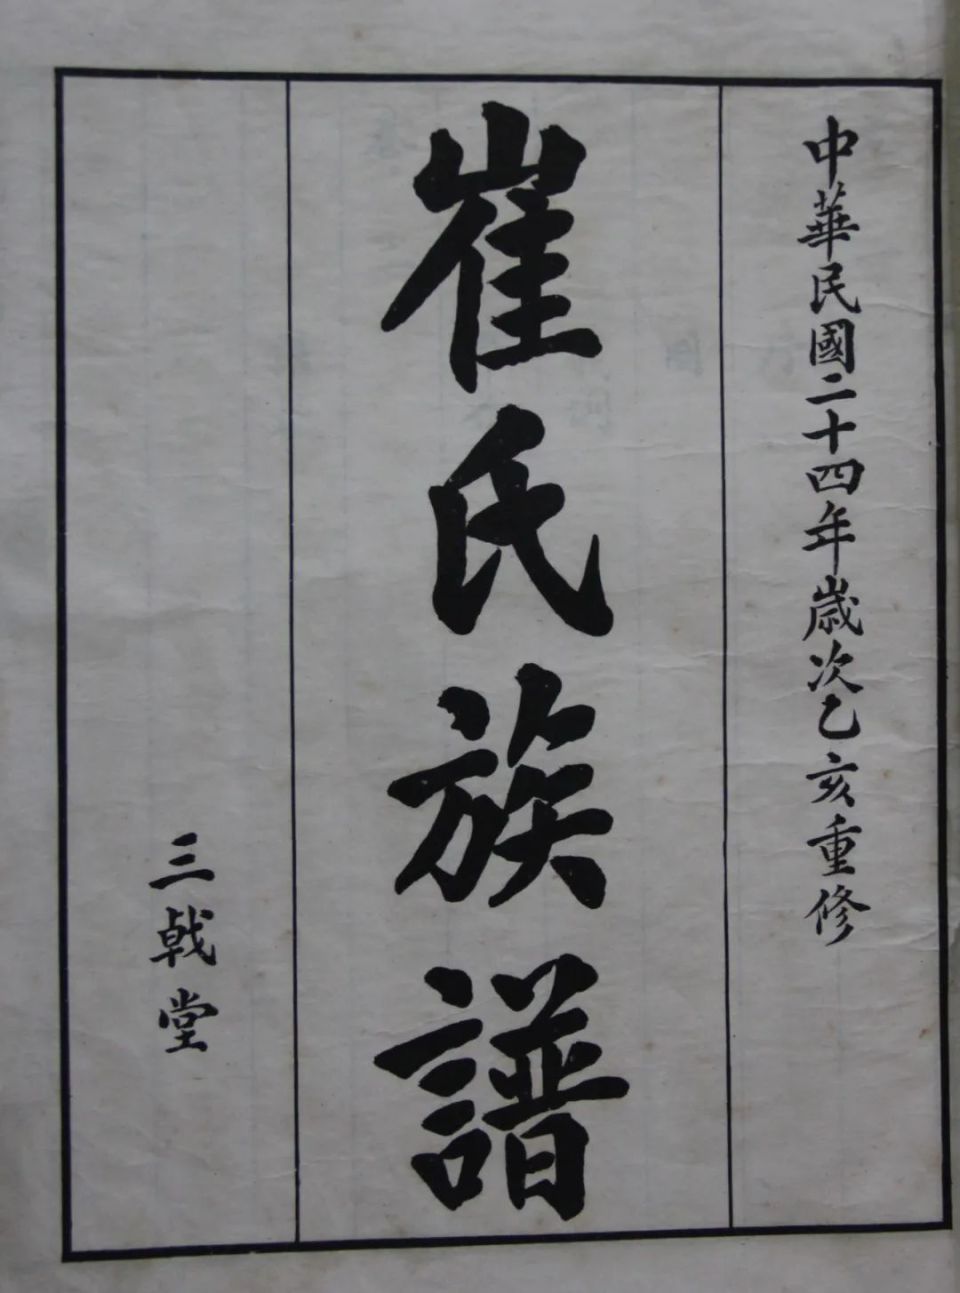 中華民國二十四年歲次乙亥重修
崔氏族譜
三戟堂